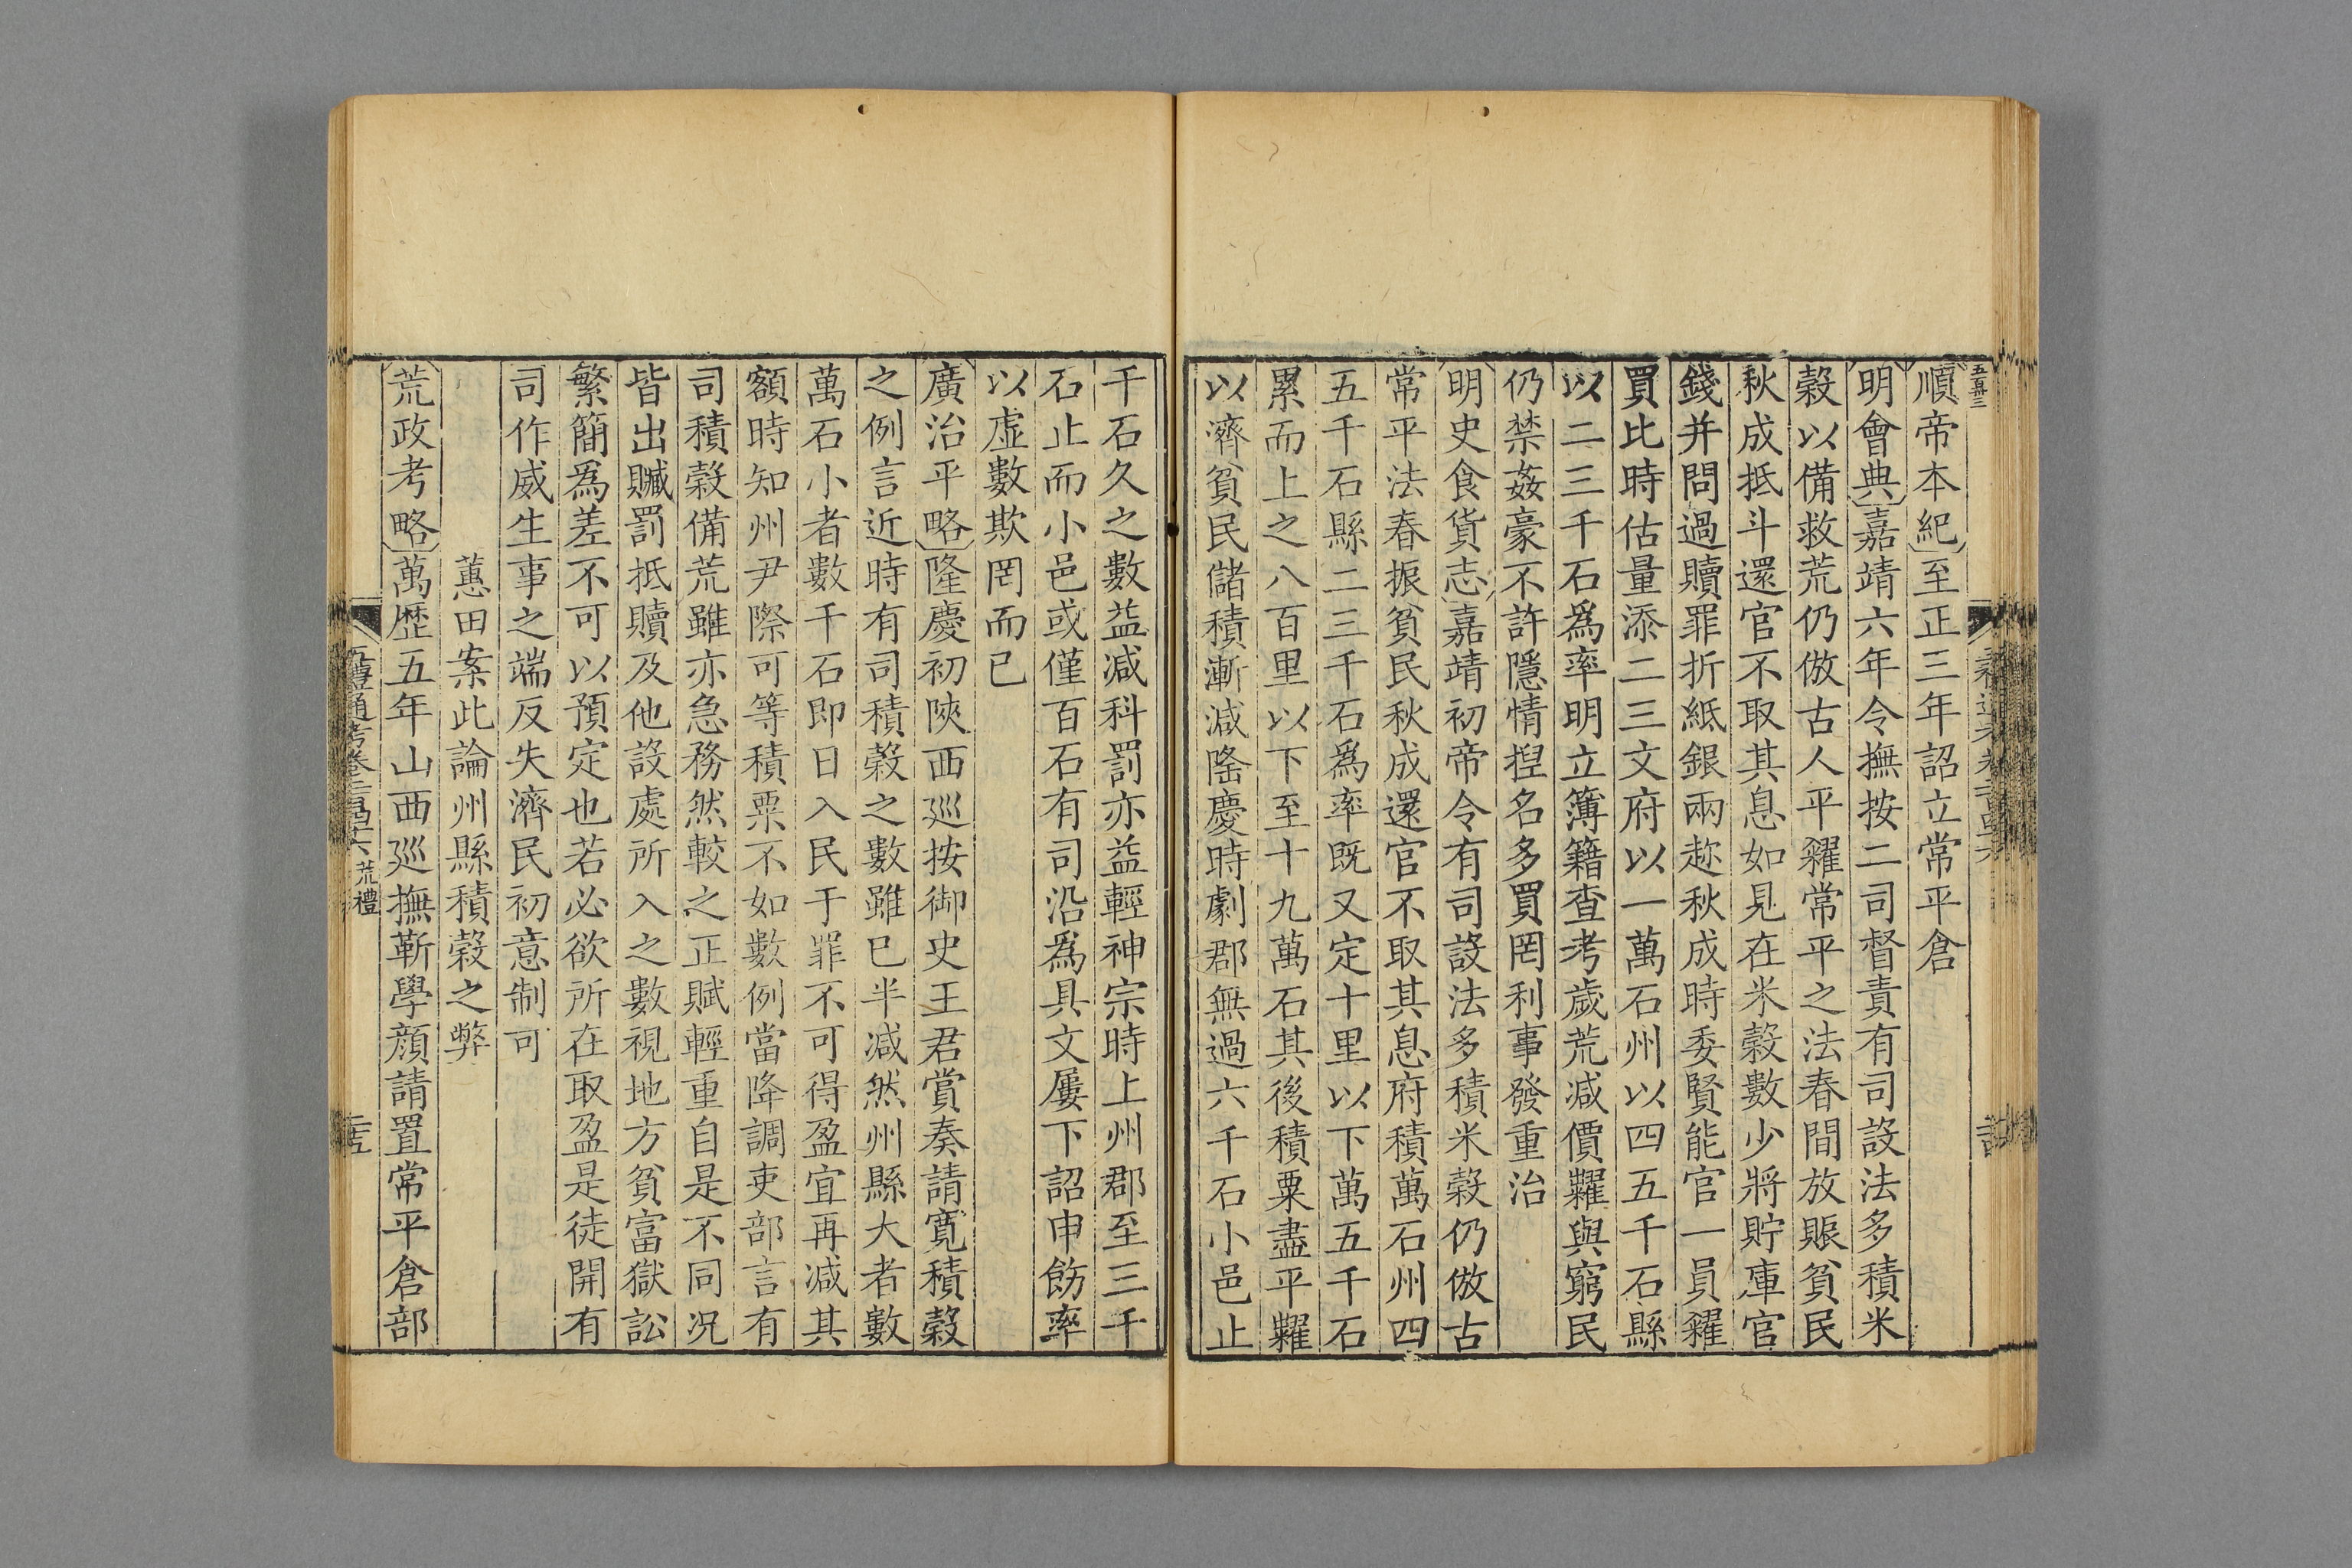 順帝本紀至正三年詔立常平倉
明會典嘉靖六年令撫按二司督責有司設法多積米
穀以備救荒仍倣古人平糴常平之法春間放賑貧民
秋成抵斗還官不取其息如見在米穀數少將貯庫官
錢并問過贖罪折紙銀兩趂秋成時委賢能官一員糴
買比時估量添二三文府以一萬石州以四五千石縣
以二三千石爲率明立簿籍查考歲荒减價糶與窮民
仍禁姦豪不許隱情揑名多買罔利事發重治
明史食貨志嘉靖初帝令有司設法多積米穀仍倣古
常平法春振貧民秋成還官不取其息府積萬石州四
五千石縣二三千石爲率既又定十里以下萬五千石
累而上之八百里以下至十九萬石其後積粟盡平糶
以濟貧民儲積漸减隆慶時劇郡無過六千石小邑止
千石久之數益减科罰亦益輕神宗時上州郡至三千
石止而小邑或僅百石有司沿爲具文屢下詔申飭率
以虛數欺罔而已
廣治平略隆慶初陝西巡按御史王君賞奏請寬積穀
之例言近時有司積穀之數雖已半减然州縣大者數
萬石小者數千石即日入民于罪不可得盈宜再减其
額時知州尹際可等積粟不如數例當降調吏部言有
司積穀備荒雖亦急務然較之正賦輕重自是不同况
皆出贓罰抵贖及他設處所入之數視地方貧富獄訟
繁簡爲差不可以預定也若必欲所在取盈是徒開有
司作威生事之端反失濟民初意制可
蕙田案此論州縣積穀之弊
荒政考略萬歷五年山西巡撫靳學顔請置常平倉部
五禮通考卷二百四十六 荒禮